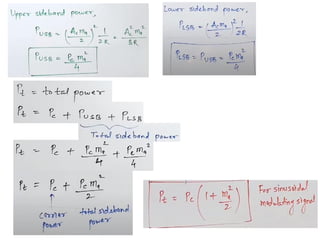 Upper sideband power,
P_USB = (A_c m_a / 2)^2 1/2R = A_c^2 m_a^2 / 8R
P_USB = P_c m_a^2 / 4
Lower sideband power,
P_LSB = (A_c m_a / 2)^2 1/2R
P_LSB = P_USB = P_c m_a^2 / 4
P_t = total power
P_t = P_c + P_USB + P_LSB
Total sideband power
P_t = P_c + P_c m_a^2 / 4 + P_c m_a^2 / 4
P_t = P_c + P_c m_a^2 / 2
Carrier power
total sideband power
P_t = P_c (1 + m_a^2 / 2)
For sinusoidal
modulating signal